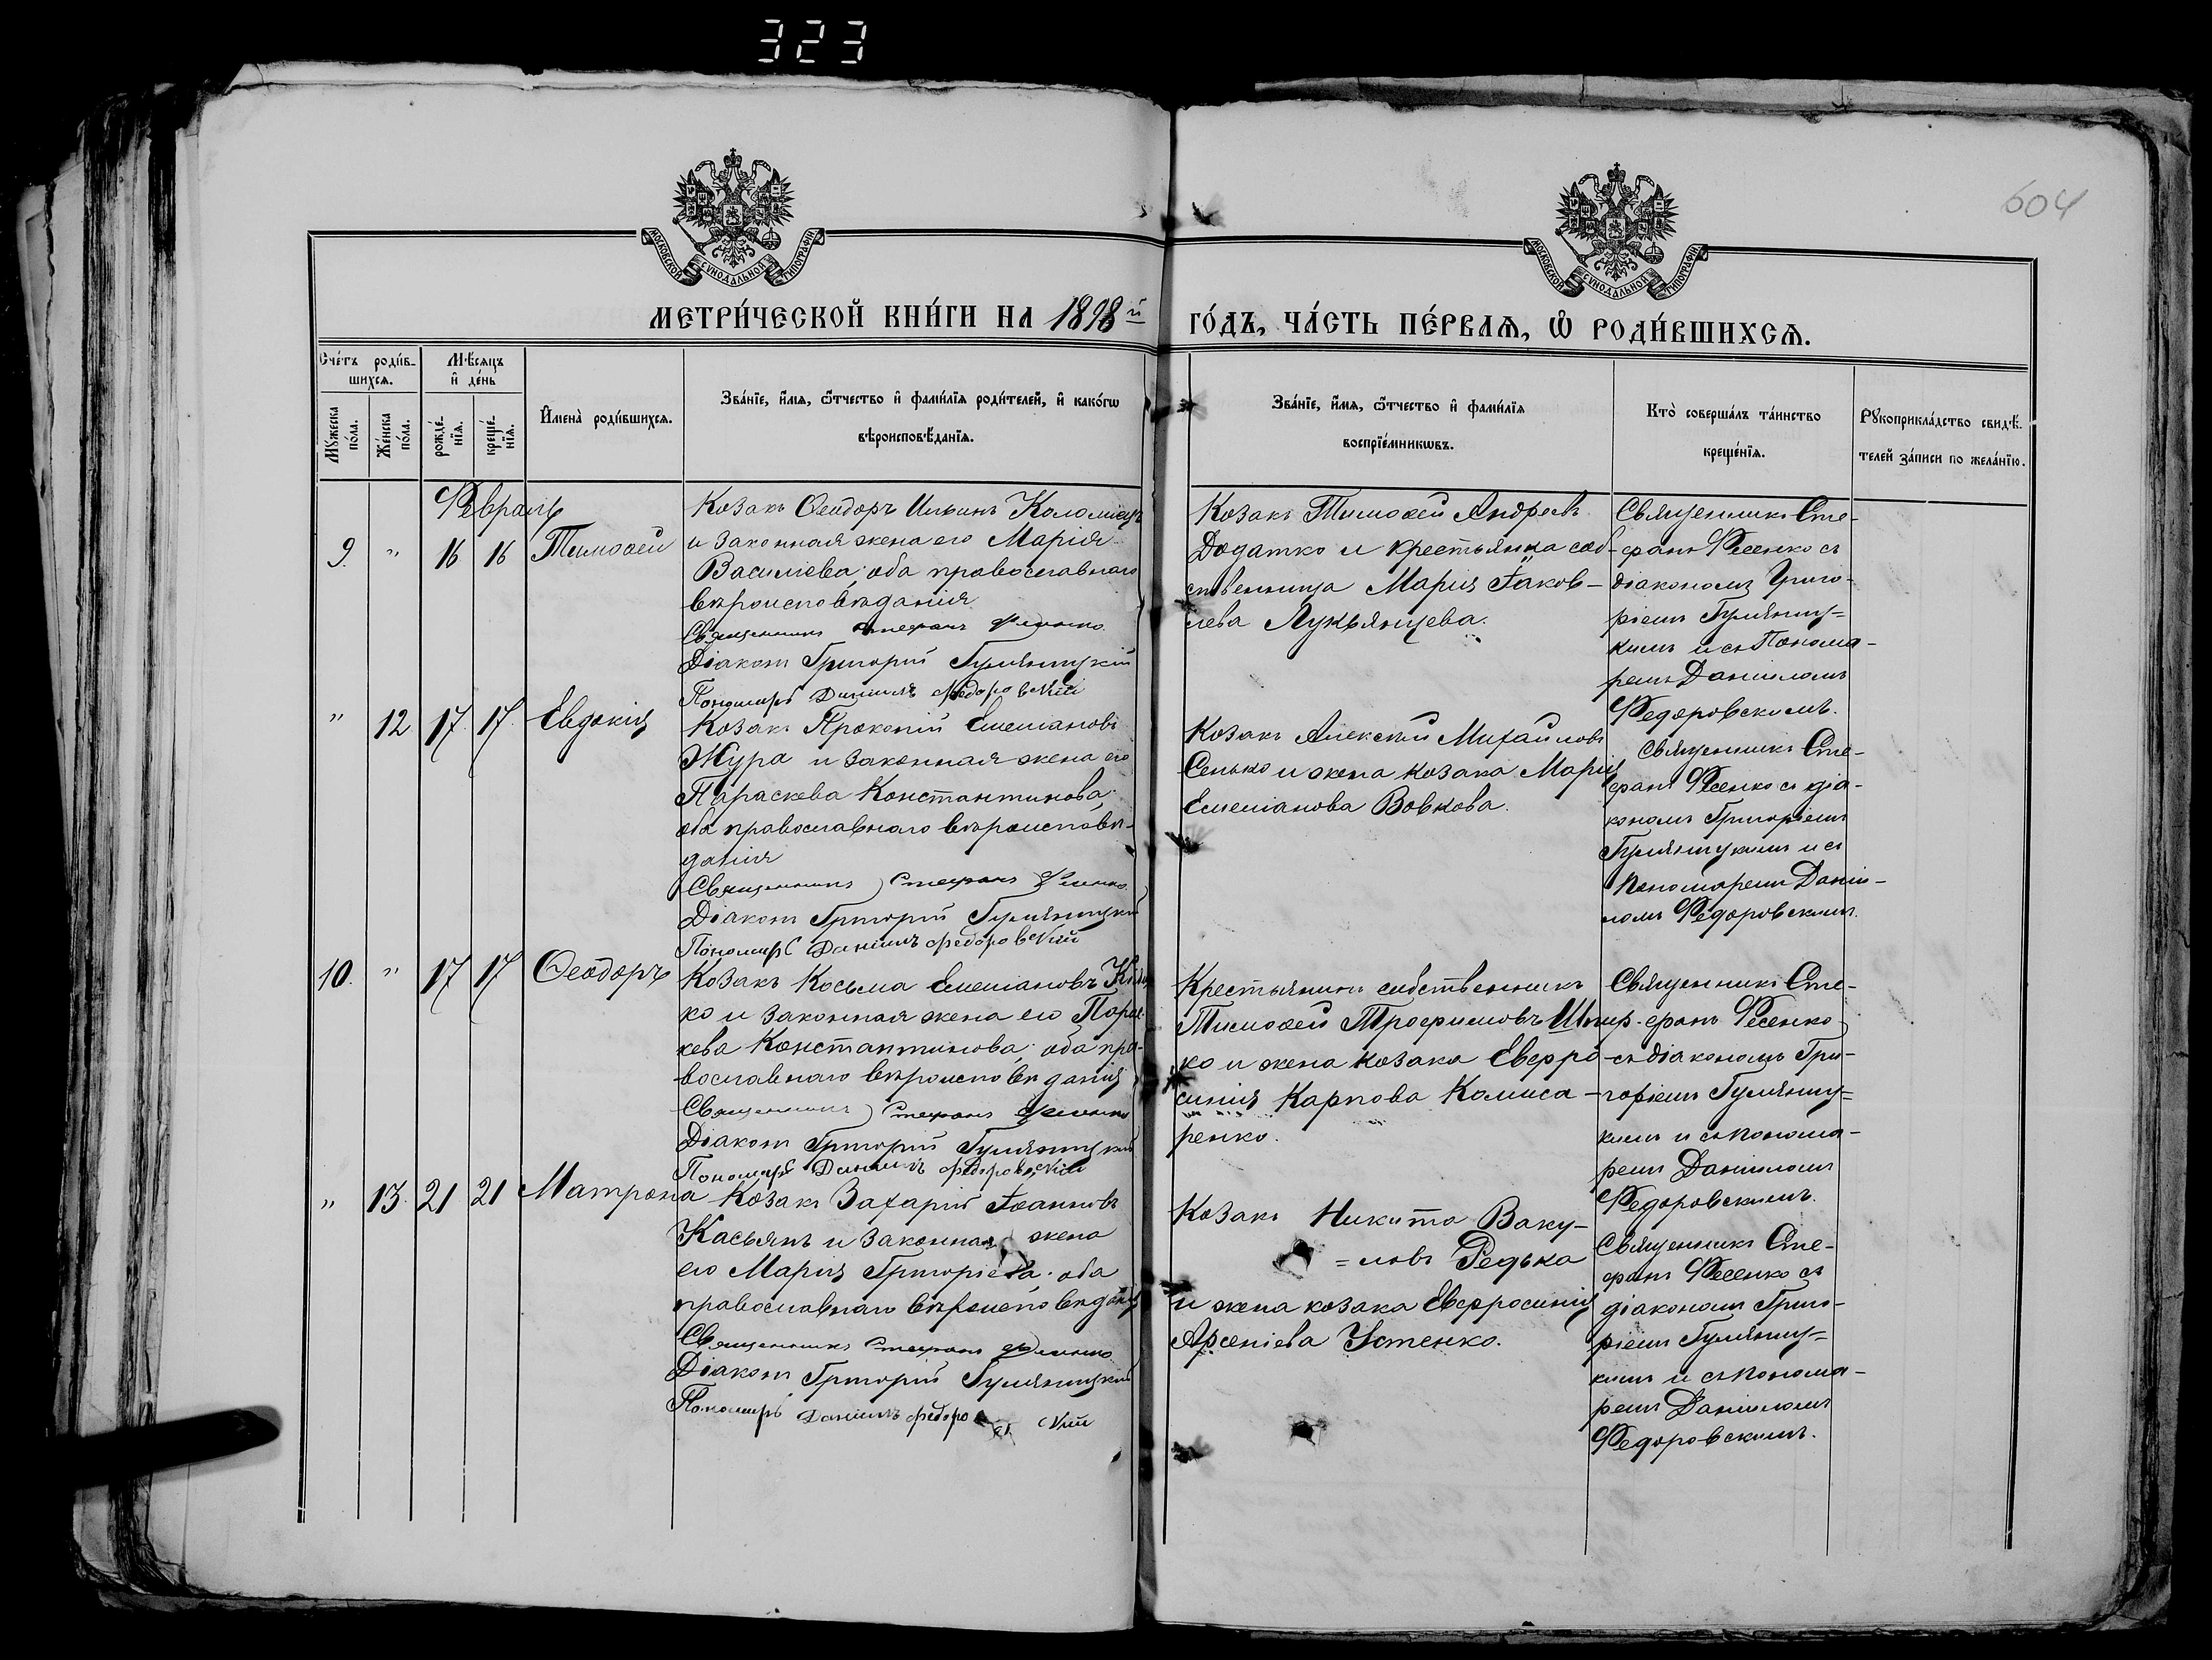 323
604
МОСКОВСКОЙ СѴНОДАЛЬНОЙ ТИПОГРАФІИ
МОСКОВСКОЙ СѴНОДАЛЬНОЙ ТИПОГРАФІИ
МЕТРИ́ЧЕСКОЙ КНИ́ГИ НА 1898й ГО́ДЪ, ЧА́СТЬ ПЕ́РВАѦ, Ѡ҆ РОДИ́ВШИХСѦ.
Сче́тъ роди́вшихсѧ.
Мꙋ́жеска по́ла.
Же́нска по́ла.
Мѣ́сѧцъ и҆ де́нь
рожде́нїѧ.
креще́нїѧ.
И҆мена̀ роди́вшихсѧ.
Зва́нїе, и҆́мѧ, ѻ҆́тчество и҆ фами́лїѧ роди́телей, и҆ како́гѡ
вѣроисповѣ́данїѧ.
Зва́нїе, и҆́мѧ, ѻ҆́тчество и҆ фами́лїѧ
воспрїе́мникѡвъ.
Кто̀ соверша́лъ та́инство
креще́нїѧ.
Рꙋкоприкла́дство свидѣ́-
телей за́писи по жела́нїю.
Февраль
9. " 16 16 Тимоѳей
Козакъ Ѳеодоръ Ильинъ Коломіецъ
и законная жена его Марія
Василіева; оба православнаго
вѣроисповѣданія
Священникъ Стефанъ Фесенко
Діаконъ Григорій Гумяницкій
Пономарь Даніилъ Федоровскій
Козакъ Тимоѳей Андреевъ
Додатко и крестьянка соб-
ственница Марія Іаков-
лева Лукьянцева.
Священникъ Сте-
фанъ Фесенко съ
діакономъ Григо-
ріемъ Гумяниц=
кимъ и съ Понома-
ремъ Даніиломъ
Федоровскимъ.
" 12 17 17 Евдокія
Козакъ Прокопій Емеліановъ
Жура и законная жена его
Параскева Константинова;
оба православнаго вѣроисповѣ-
данія
Священникъ Стефанъ Фесенко
Діаконъ Григорій Гумяницкій
Пономарь Даніилъ Федоровскій
Козакъ Алексѣй Михайловъ
Сенько и жена козака Марія
Емеліанова Вовкова.
Священникъ Сте-
фанъ Фесенко съ діа-
кономъ Григоріемъ
Гумяницкимъ и съ
Пономаремъ Дані-
ломъ Федоровскимъ.
10. " 17 17 Ѳеодоръ
Козакъ Косьма Емеліановъ
ко и законная жена его Парас-
кева Константинова; оба пра-
вославнаго вѣроисповѣданія
Священникъ Стефанъ Фесенко
Діаконъ Григорій Гумяницкій
Пономарь Даніилъ Федоровскій
Крестьянинъ собственникъ
Тимоѳей Трофимовъ
ко и жена козака Евфро-
синія Карпова Комиса-
ренко.
Священникъ Сте-
фанъ Фесенко
съ діакономъ Гри-
горіемъ Гумяниц=
кимъ и съ понома-
ремъ Даніиломъ
Федоровскимъ.
" 13. 21 21 Матрона
Козакъ Захарій Іоанновъ
Касьянъ и законная жена
его Марія Григоріева; оба
православнаго вѣроисповѣданія
Священникъ Стефанъ Фесенко
Діаконъ Григорій Гумяницкій
Пономарь Даніилъ Федоровскій
Козакъ Никита Ваку-
=ловъ Редька
и жена козака Евфросинія
Арсеніева Устенко.
Священникъ Сте-
фанъ Фесенко съ
діакономъ Григо-
ріемъ Гумяниц=
кимъ и съ понома-
ремъ Даніиломъ
Федоровскимъ.